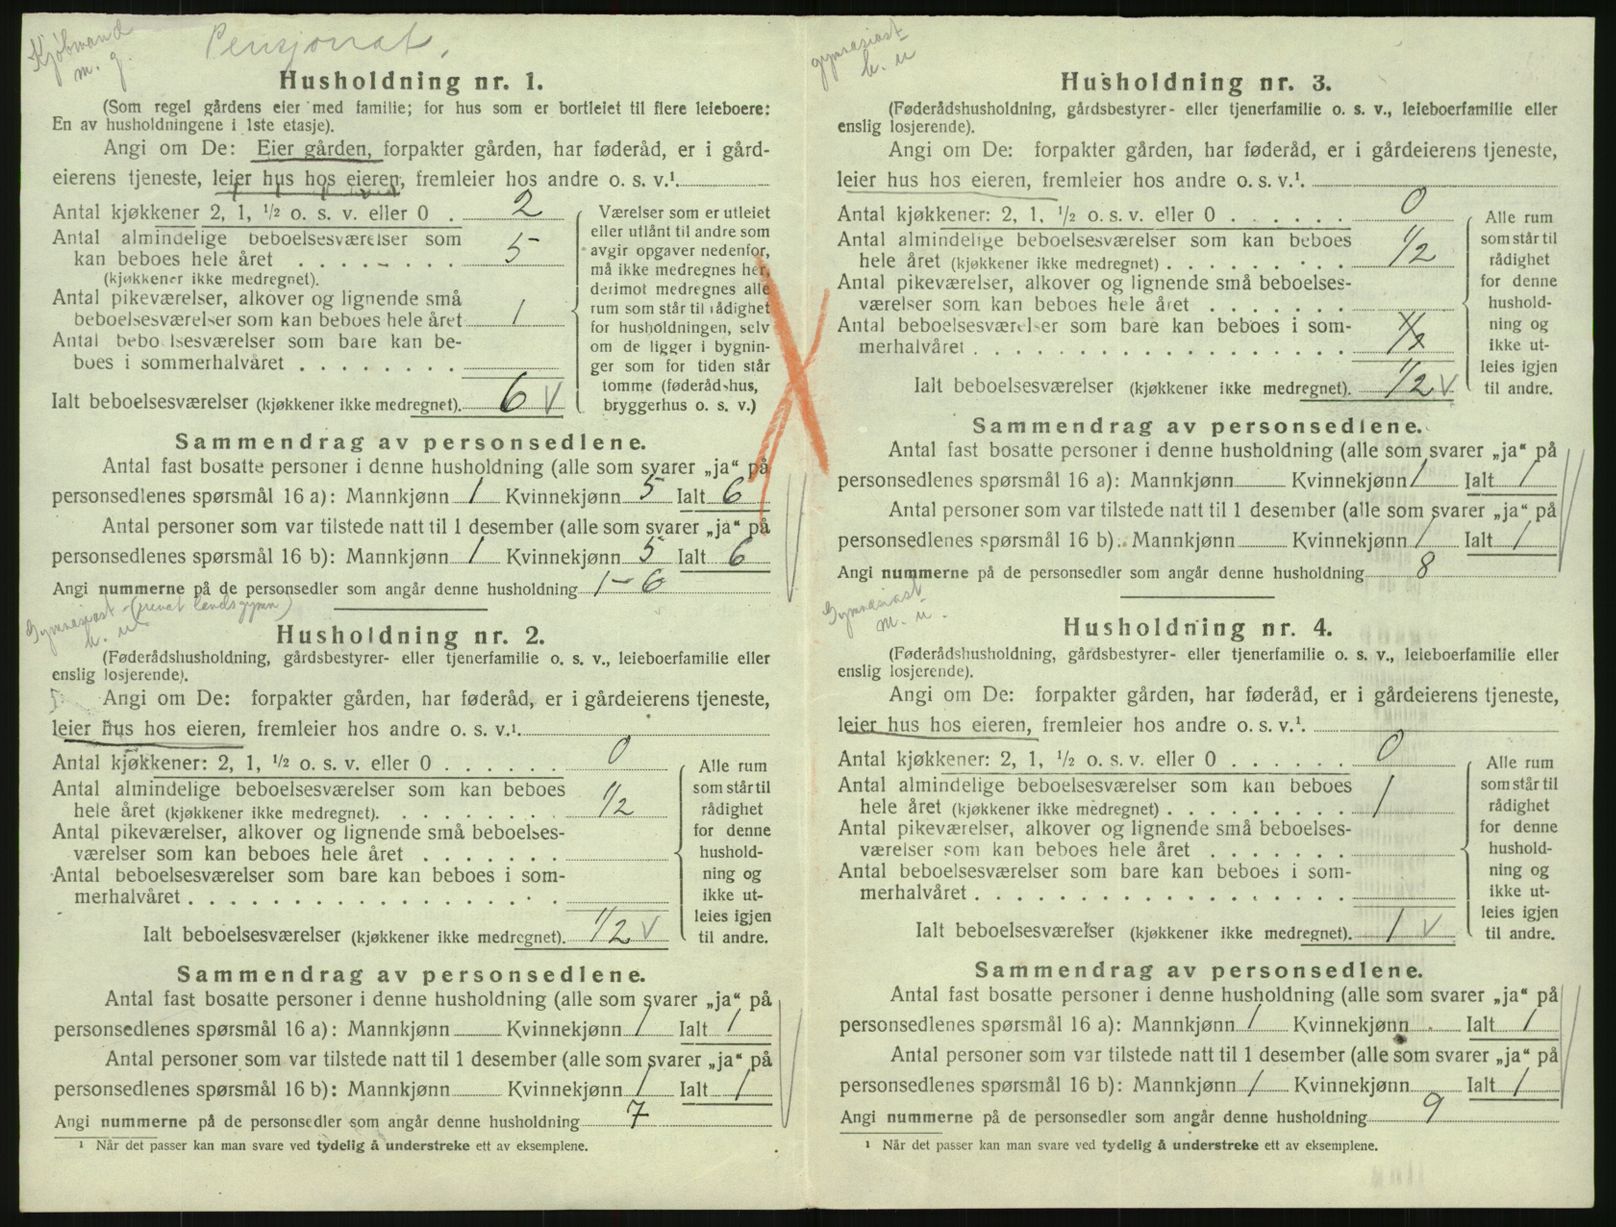 Kjøbmand
m. g.
Pensjonat.
Husholdning nr. 1.
(Som regel gårdens eier med familie; for hus som er bortleiet til flere leieboere:
En av husholdningene i 1ste etasje).
Angi om De: Eier gården, forpakter gården, har føderåd, er i gård-
eierens tjeneste, leier hus hos eieren, fremleier hos andre o. s. v.¹
Antal kjøkkener 2, 1, 1/2 o. s. v. eller 0 . 2
Antal almindelige beboelsesværelser som
kan beboes hele året . . . . . . . . 5
(kjøkkener ikke medregnet).
Antal pikeværelser, alkover og lignende små
beboelsesværelser som kan beboes hele året 1
Antal beboelsesværelser som bare kan be-
boes i sommerhalvåret . . . . . . . .
Ialt beboelsesværelser (kjøkkener ikke medregnet). 6 V
Værelser som er utleiet
eller utlånt til andre som
avgir opgaver nedenfor,
må ikke medregnes her,
derimot medregnes alle
rum som står til rådighet
for husholdningen, selv
om de ligger i bygnin-
ger som for tiden står
tomme (føderådshus,
bryggerhus o. s. v.)
Sammendrag av personsedlene.
Antal fast bosatte personer i denne husholdning (alle som svarer „ja“ på
personsedlenes spørsmål 16 a): Mannkjønn 1 Kvinnekjønn 5 Ialt 6
Antal personer som var tilstede natt til 1 desember (alle som svarer „ja“ på
personsedlenes spørsmål 16 b): Mannkjønn 1 Kvinnekjønn 5 Ialt 6
Angi nummerne på de personsedler som angår denne husholdning 1-6
Gymnasiast (privat landsgymn)
k. u.
Husholdning nr. 2.
(Føderådshusholdning, gårdsbestyrer- eller tjenerfamilie o. s. v., leieboerfamilie eller
enslig losjerende).
Angi om De: forpakter gården, har føderåd, er i gårdeierens tjeneste,
leier hus hos eieren, fremleier hos andre o. s. v.¹.
Antal kjøkkener: 2, 1, 1/2 o. s. v. eller 0 . . . . . . 0
Antal almindelige beboelsesværelser som kan beboes
hele året (kjøkkener ikke medregnet). . . . . . . . . 1/2
Antal pikeværelser, alkover og lignende små beboelses-
værelser som kan beboes hele året . . . . . . .
Antal beboelsesværelser som bare kan beboes i som-
merhalvåret . . . . . . . . . . . . . . . . . .
Ialt beboelsesværelser (kjøkkener ikke medregnet). 1/2 V
Alle rum
som står til
rådighet
for denne
hushold-
ning og
ikke ut-
leies igjen
til andre.
Sammendrag av personsedlene.
Antal fast bosatte personer i denne husholdning (alle som svarer „ja“ på
personsedlenes spørsmål 16 a): Mannkjønn Kvinnekjønn 1 Ialt 1
Antal personer som var tilstede natt til 1 desember (alle som svarer „ja“ på
personsedlenes spørsmål 16 b): Mannkjønn Kvinnekjønn 1 Ialt 1
Angi nummerne på de personsedler som angår denne husholdning 7
¹ Når det passer kan man svare ved tydelig å understreke ett av eksemplene.
gymnasiast
k. u
Husholdning nr. 3.
(Føderådshusholdning, gårdsbestyrer- eller tjenerfamilie o. s. v., leieboerfamilie eller
enslig losjerende).
Angi om De: forpakter gården, har føderåd, er i gårdeierens tjeneste,
leier hus hos eieren, fremleier hos andre o. s. v.¹.
Antal kjøkkener: 2, 1, 1/2 o. s. v. eller 0 . . . . . . 0
Antal almindelige beboelsesværelser som kan beboes
hele året (kjøkkener ikke medregnet) . . . . . . . . . 1/2
Antal pikeværelser, alkover og lignende små beboelses-
værelser som kan beboes hele året . . . . . . .
Antal beboelsesværelser som bare kan beboes i som-
merhalvåret . . . . . . . . . . . . . . . . . . 1/2
Ialt beboelsesværelser (kjøkkener ikke medregnet). 1/2 V
Alle rum
som står til
rådighet
for denne
hushold-
ning og
ikke ut-
leies igjen
til andre.
Sammendrag av personsedlene.
Antal fast bosatte personer i denne husholdning (alle som svarer „ja“ på
personsedlenes spørsmål 16 a): Mannkjønn Kvinnekjønn 1 Ialt 1
Antal personer som var tilstede natt til 1 desember (alle som svarer „ja“ på
personsedlenes spørsmål 16 b): Mannkjønn Kvinnekjønn 1 Ialt 1
Angi nummerne på de personsedler som angår denne husholdning 8
Gymnasiast
m. u.
Husholdning nr. 4.
(Føderådshusholdning, gårdsbestyrer- eller tjenerfamilie o. s. v., leieboerfamilie eller
enslig losjerende).
Angi om De: forpakter gården, har føderåd, er i gårdeierens tjeneste,
leier hus hos eieren, fremleier hos andre o. s. v.¹.
Antal kjøkkener: 2, 1, 1/2 o. s. v. eller 0 . . . . . . 0
Antal almindelige beboelsesværelser som kan beboes
hele året (kjøkkener ikke medregnet) . . . . . . . . . 1
Antal pikeværelser, alkover og lignende små beboelses-
værelser som kan beboes hele året . . . . . . .
Antal beboelsesværelser som bare kan beboes i som-
merhalvåret . . . . . . . . . . . . . . . . . .
Ialt beboelsesværelser (kjøkkener ikke medregnet). 1 V
Alle rum
som står til
rådighet
for denne
hushold-
ning og
ikke ut-
leies igjen
til andre.
Sammendrag av personsedlene.
Antal fast bosatte personer i denne husholdning (alle som svarer „ja“ på
personsedlenes spørsmål 16 a): Mannkjønn 1 Kvinnekjønn Ialt 1
Antal personer som var tilstede natt til 1 desember (alle som svarer „ja“ på
personsedlenes spørsmål 16 b): Mannkjønn 1 Kvinnekjønn Ialt 1
Angi nummerne på de personsedler som angår denne husholdning 9
¹ Når det passer kan man svare ved tydelig å understreke ett av eksemplene.